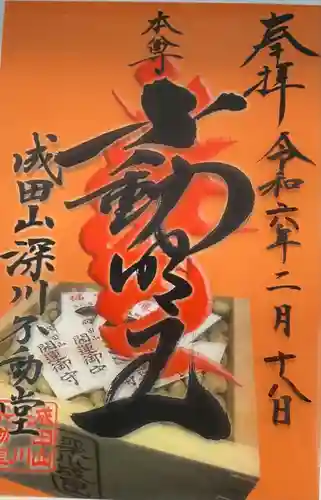 奉拝
令和六年二月十八日
本尊
不動明王
成田山深川不動堂
開運御守
開運御守